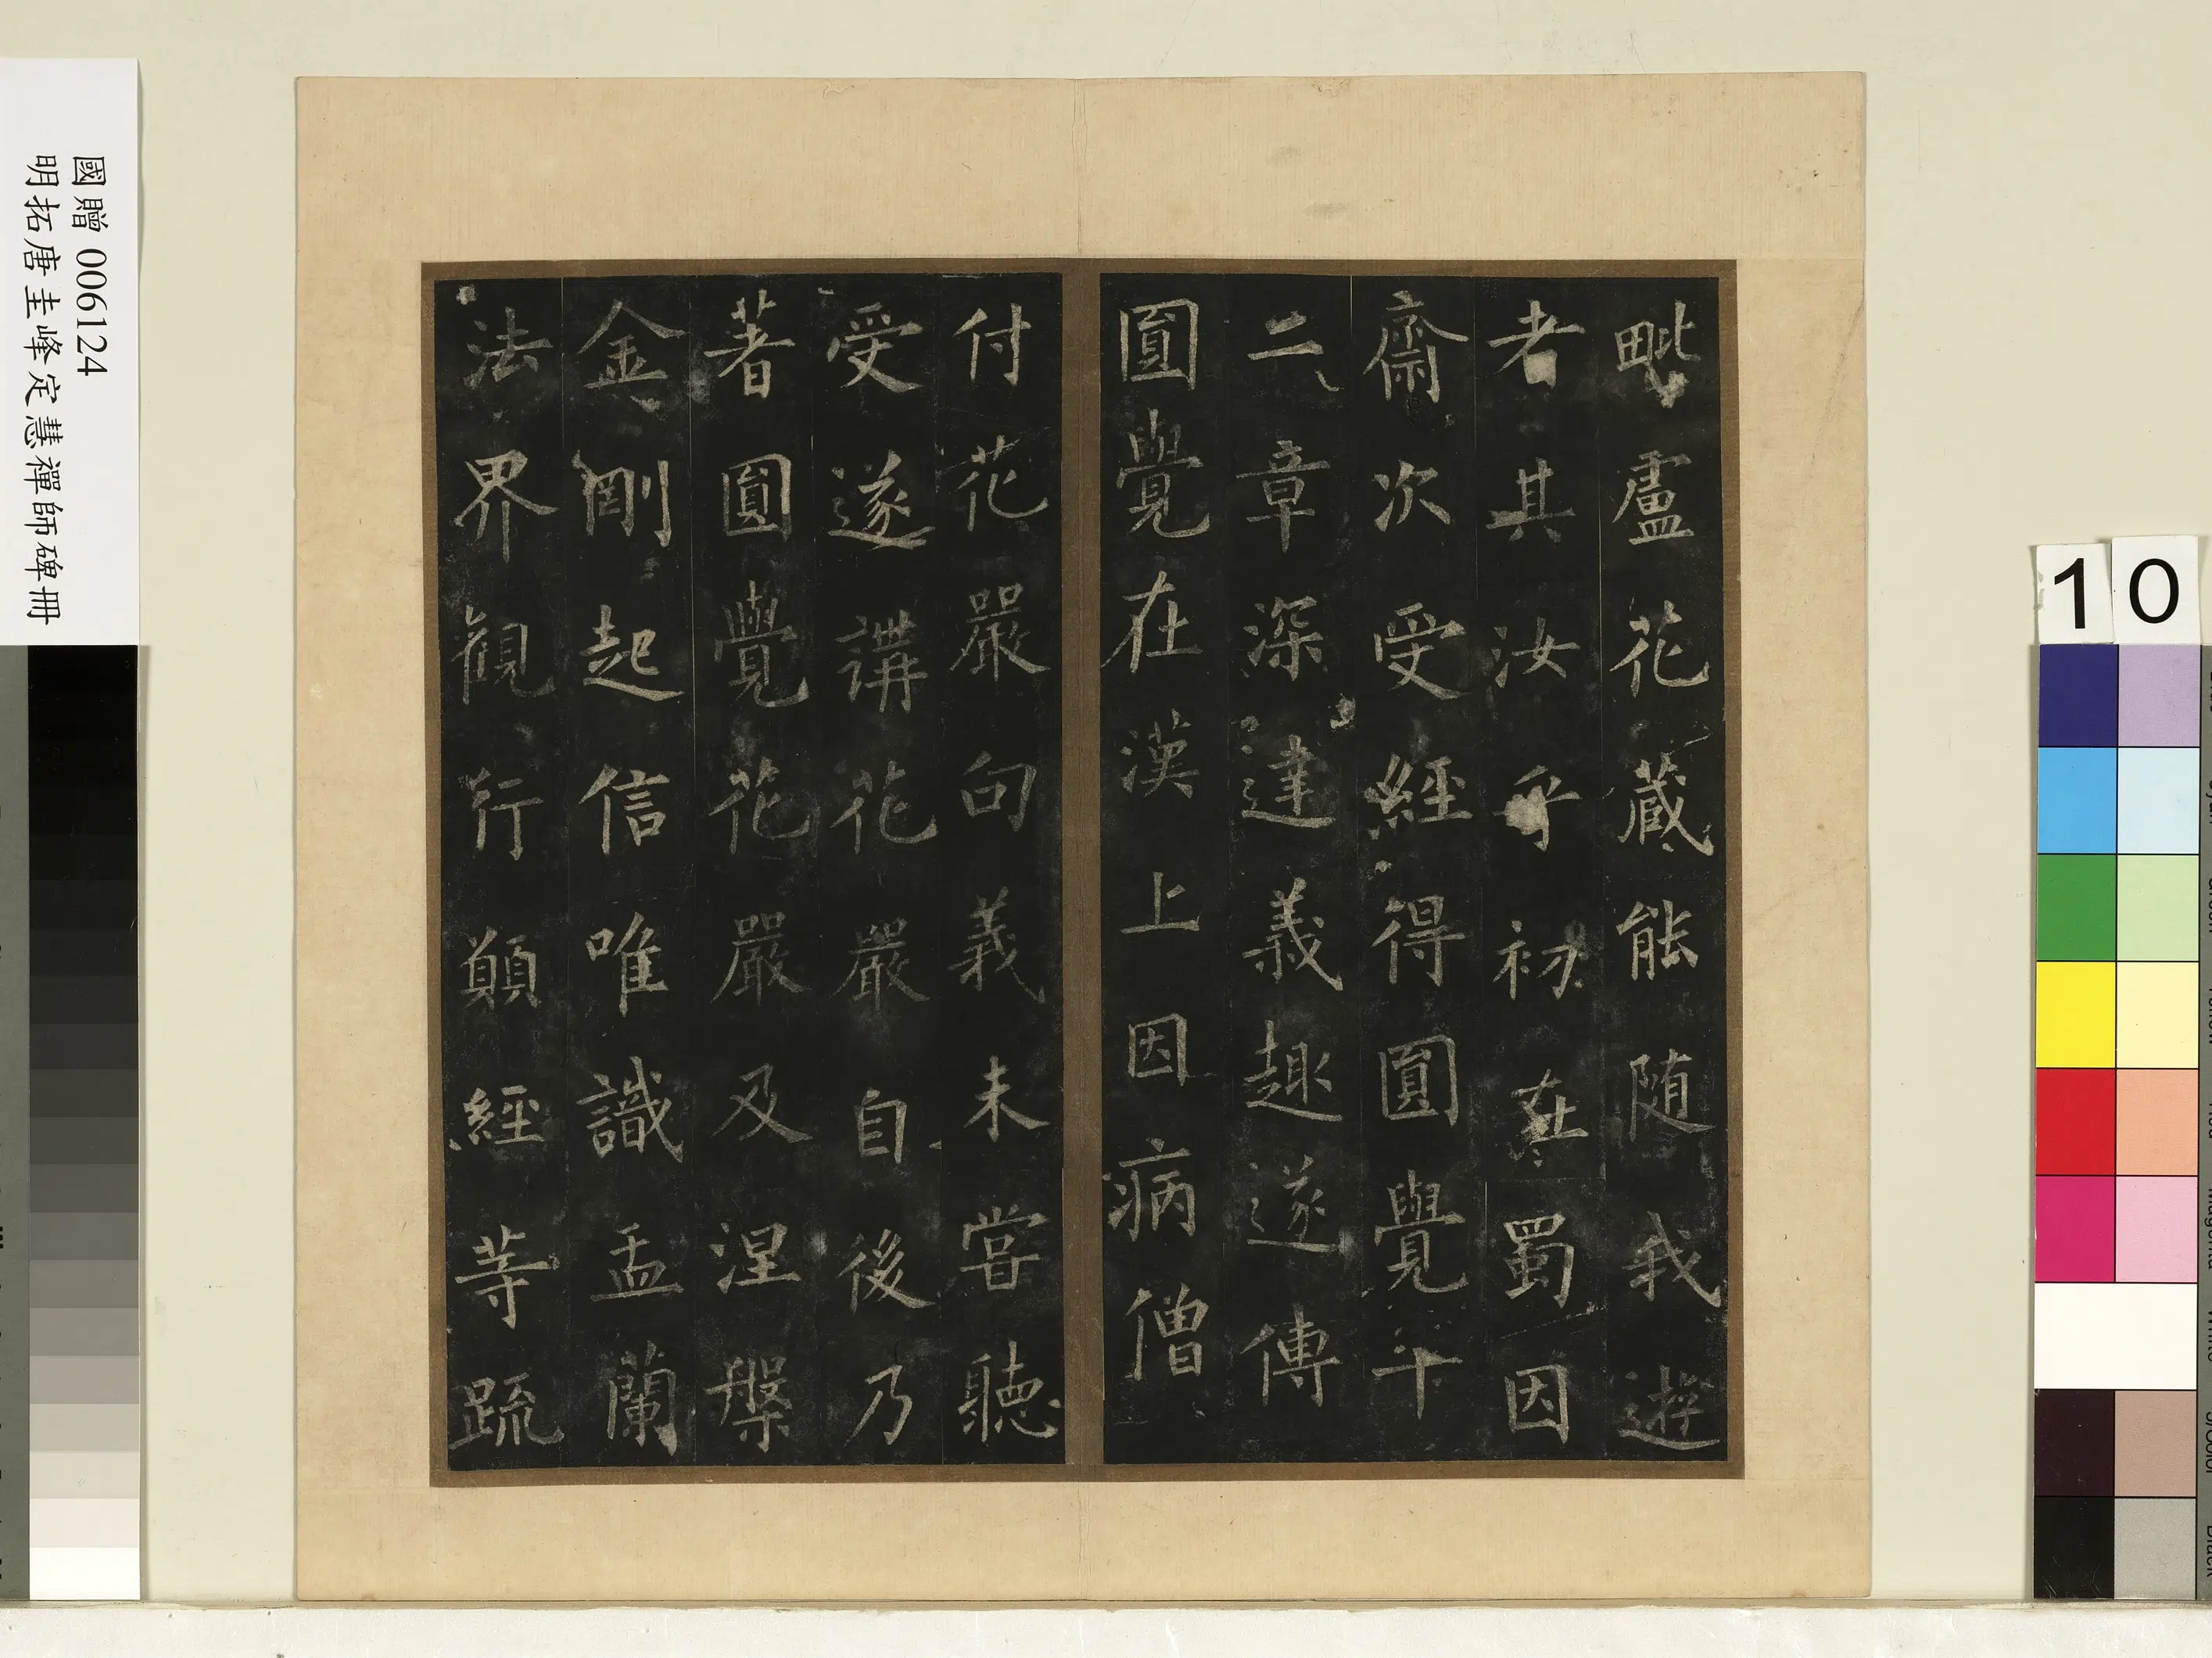 毗盧花藏能随我遊
者其汝乎初在蜀因
齋次受經得圓覺十
二章深達義趣遂傳
圓覺在漢上因病僧
付花嚴句義未嘗聽
受遂講花嚴自後乃
著圓覺花嚴及涅槃
金剛起信唯識盂蘭
法界觀行願經等疏
國贈 006124
明拓唐圭峰定慧禪師碑冊
10